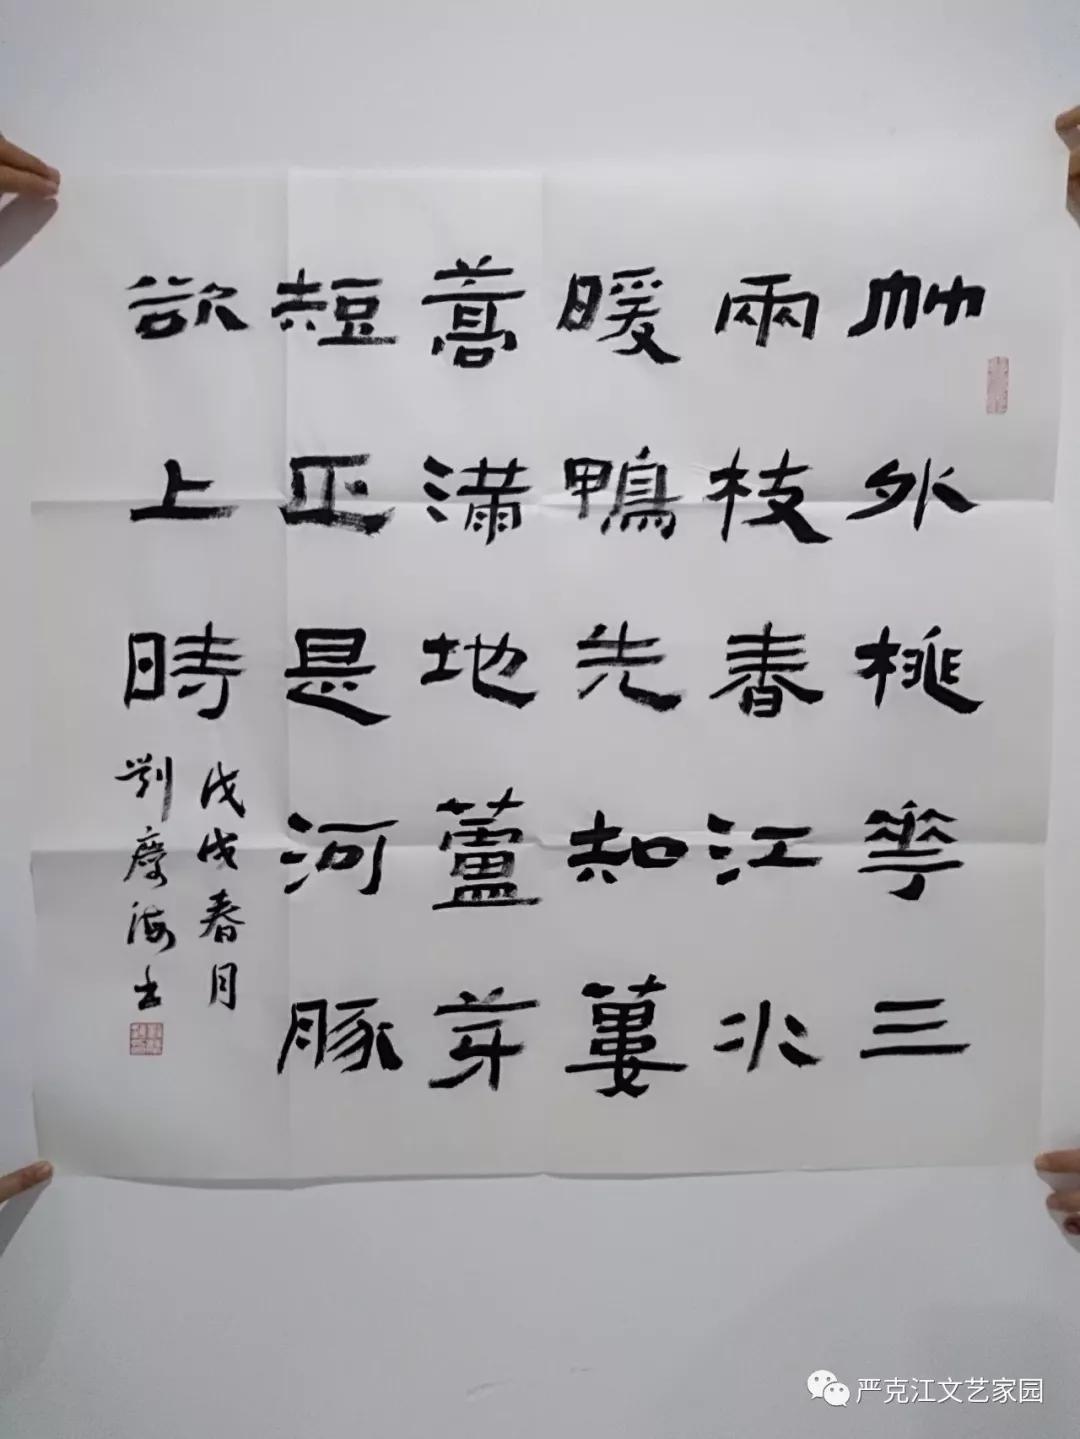 竹外桃花三
兩枝春江水
暖鴨先知蔞
蒿滿地蘆芽
短正是河豚
欲上時
戊戌春月
劉慶海書
严克江文艺家园